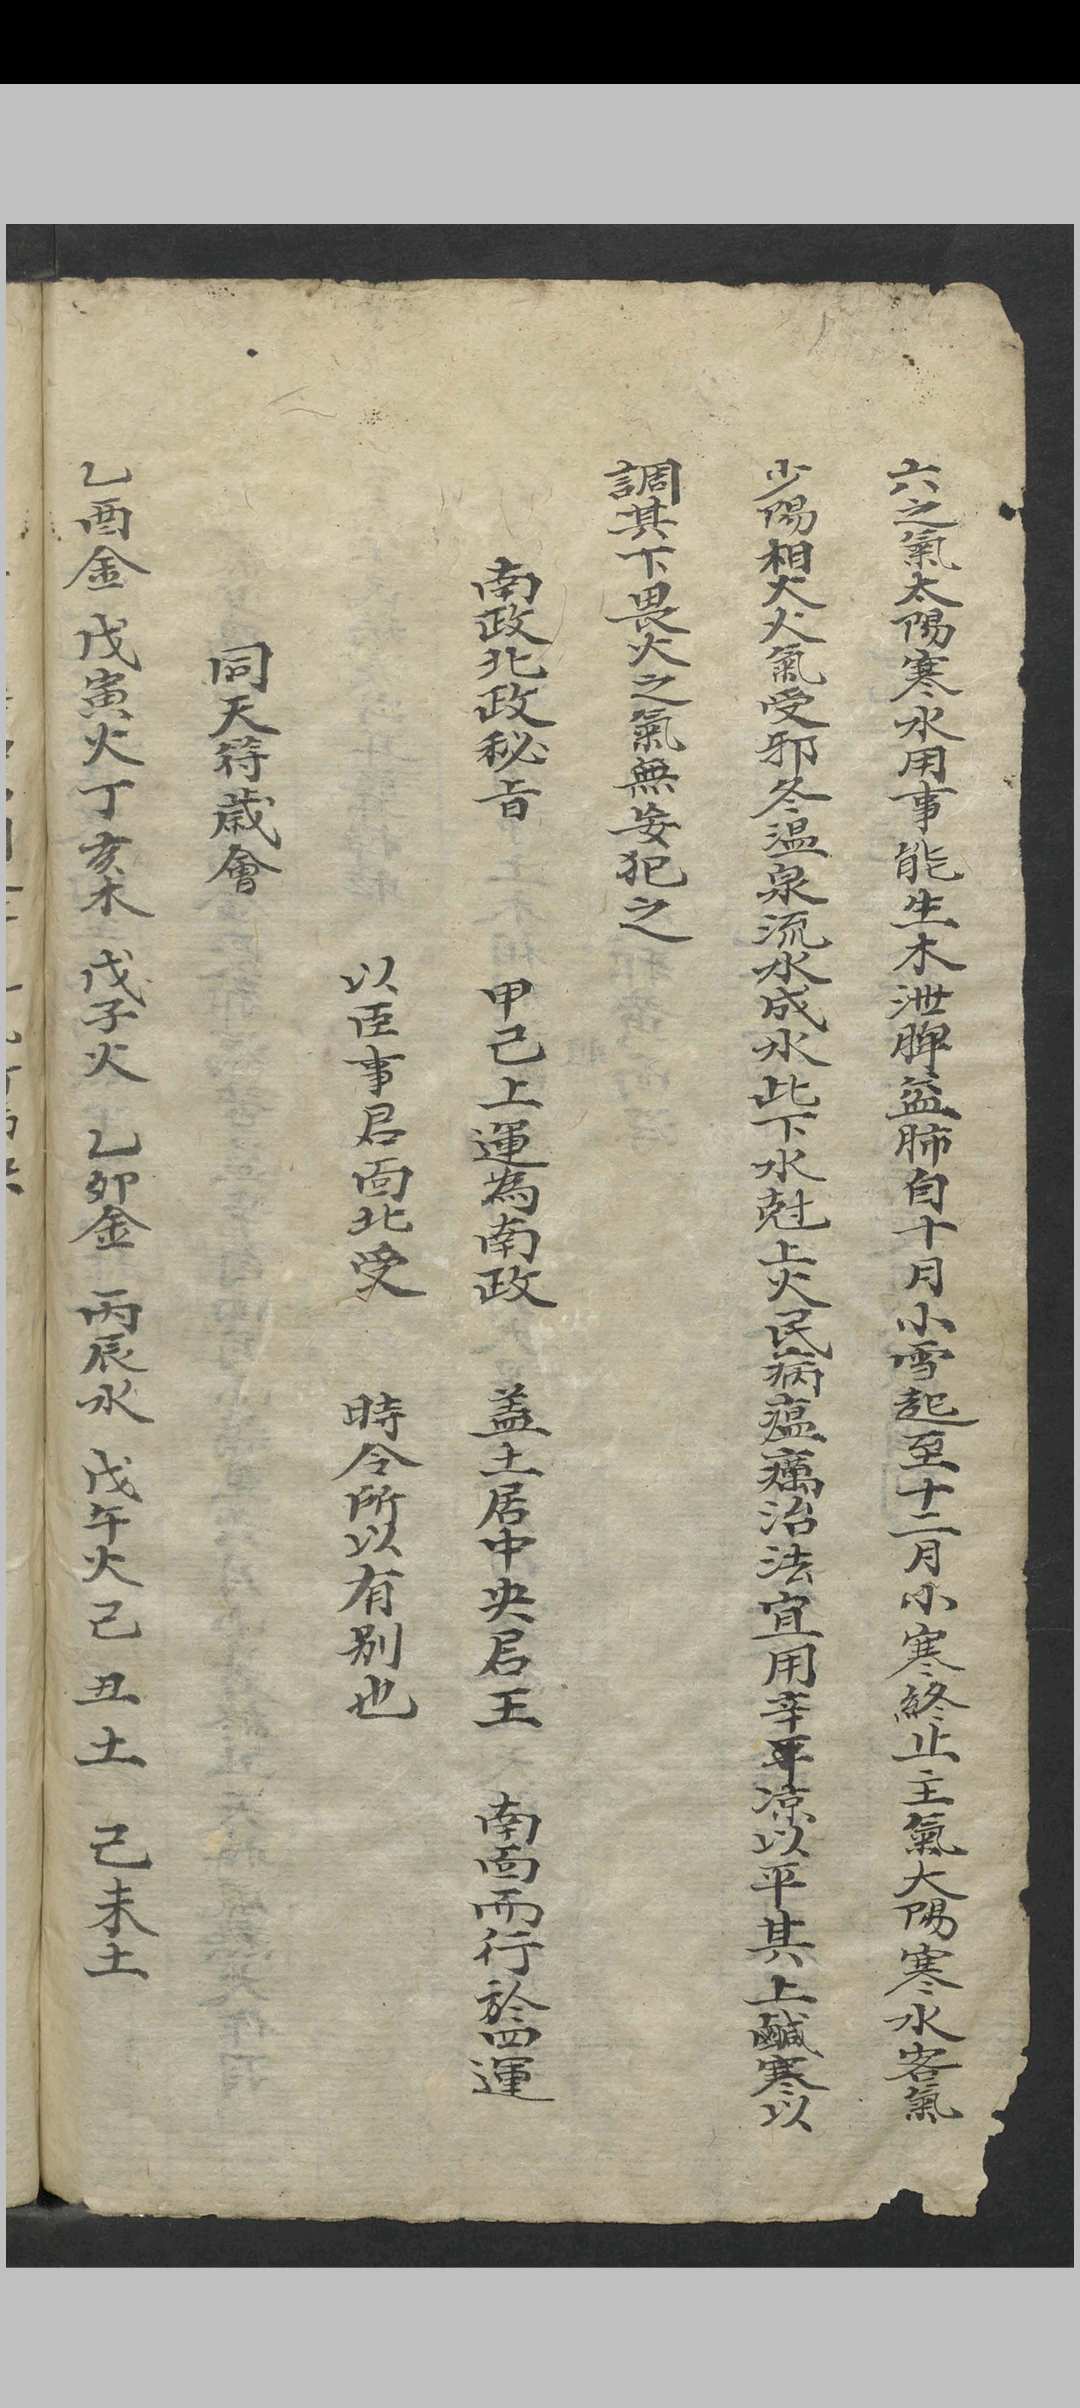 六之氣太陽寒水用事能生木泄脾益肺自十月小雪起至十二月小寒終止主氣大陽寒水客氣
少陽相火火氣受邪冬温泉流水成水此下水尅上火民病瘟癘治法宜用辛平凉以平其上鹹寒以
調其下畏火之氣無妄犯之
南政北政秘旨 甲己上運為南政 盖土居中央君王 南面而行於四運
以臣事君面北受 時令所以有別也
同天符歲會
乙酉金 戊寅火丁亥木 戊子火 乙卯金 丙辰水 戊午火己丑土 己未土